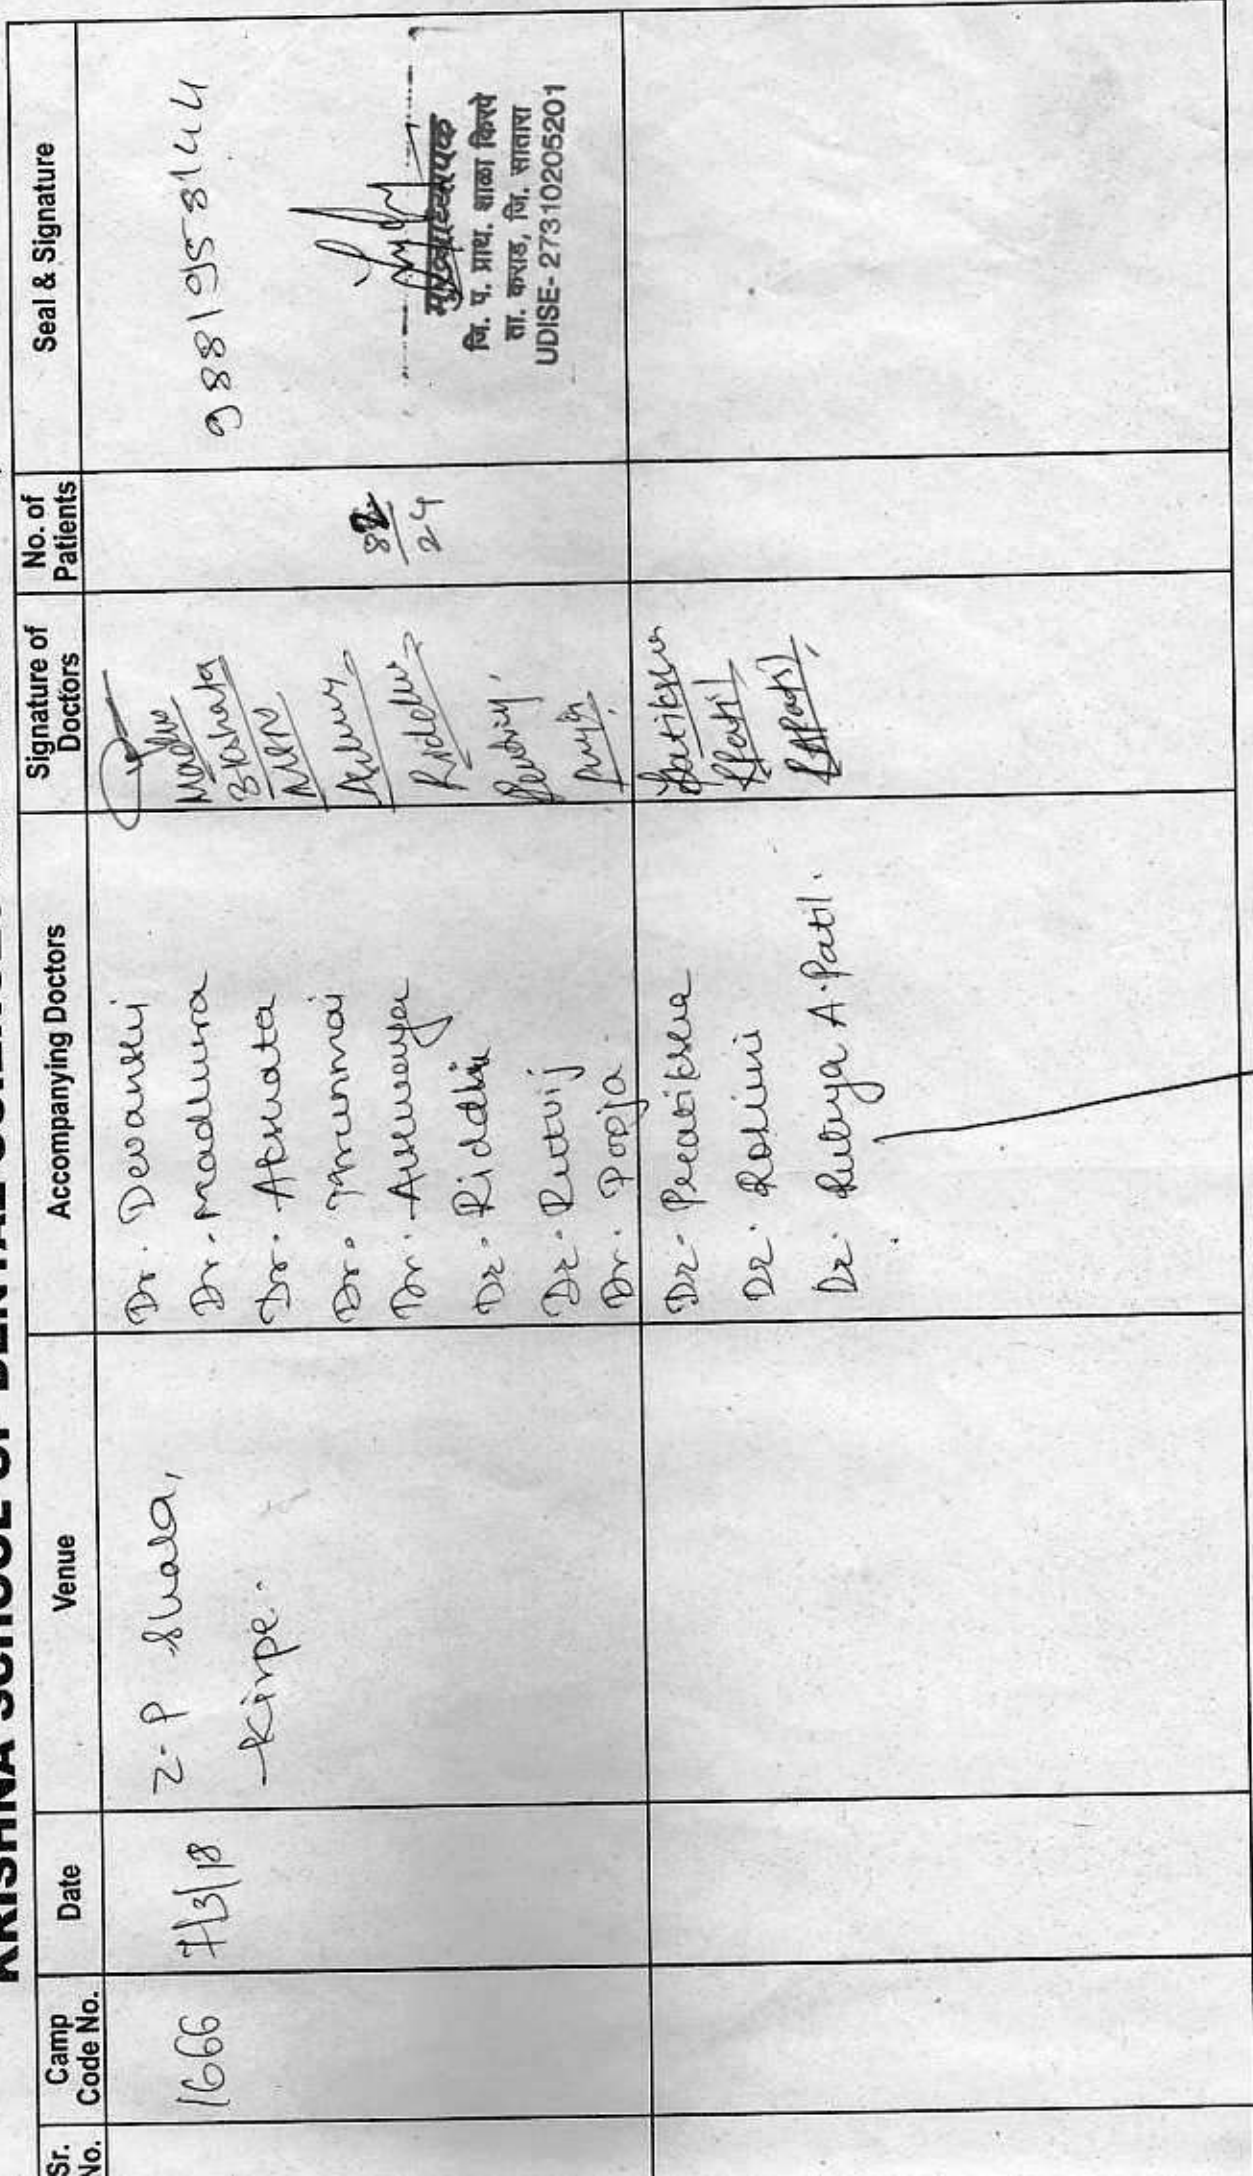 KRISHNA SCHOOL OF DENTAL SCIENCES
Sr. No.
Camp Code No.
Date
Venue
Accompanying Doctors
Signature of Doctors
No. of Patients
Seal & Signature
1666
7/3/18
Z-P Shala,
Kirpe.
Dr. Devanshi
Dr. Madhura
Dr. Akshata
Dr. Mrunmai
Dr.
Dr. Riddhi
Dr. Rutvij
Dr. Pooja
Madhu
Akshata
Riddhi
82
24
9881958144
मुख्याध्यापक
जि. प. प्राथ. शाळा किरपे
ता. कराड, जि. सातारा
UDISE- 27310205201
Dr. Pratiksha
Dr. Rohini
Dr. Rutuja A. Patil.
Pratiksha
RPatil
RAPatil